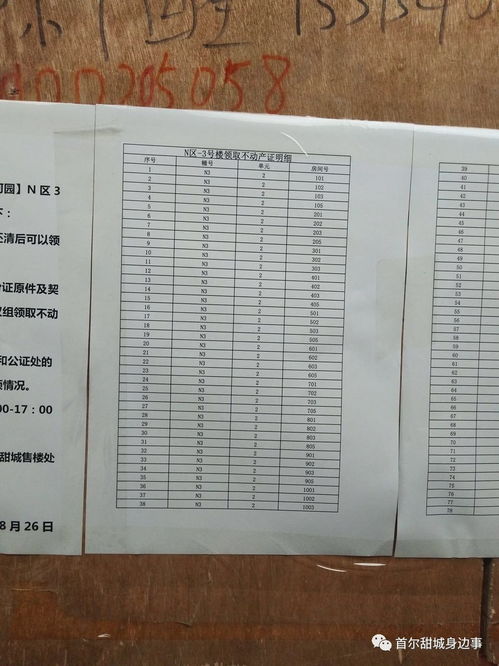 00205058
N区-3号楼领取不动产证明细
序号 幢号 单元 房间号
1 N3 2 101
2 N3 2 102
3 N3 2 103
4 N3 2 105
5 N3 2 201
6 N3 2 202
7 N3 2 203
8 N3 2 205
9 N3 2 301
10 N3 2 302
11 N3 2 303
12 N3 2 401
13 N3 2 402
14 N3 2 403
15 N3 2 405
16 N3 2 501
17 N3 2 502
18 N3 2 503
19 N3 2 505
20 N3 2 601
21 N3 2 602
22 N3 2 603
23 N3 2 605
24 N3 2 701
25 N3 2 702
26 N3 2 703
27 N3 2 705
28 N3 2 801
29 N3 2 802
30 N3 2 803
31 N3 2 805
32 N3 2 901
33 N3 2 902
34 N3 2 903
35 N3 2 905
36 N3 2 1001
37 N3 2 1002
38 N3 2 1003
园】N区3
下：
还清后可以领
证原件及契
组领取不动
和公证处的
情况。
00-17：00
甜城售楼处
8月26日
39
40
41
42
43
44
45
46
47
48
49
50
51
52
53
54
55
56
57
58
59
60
61
62
63
64
65
66
67
68
69
70
71
72
73
74
75
76
77
78
首尔甜城身边事